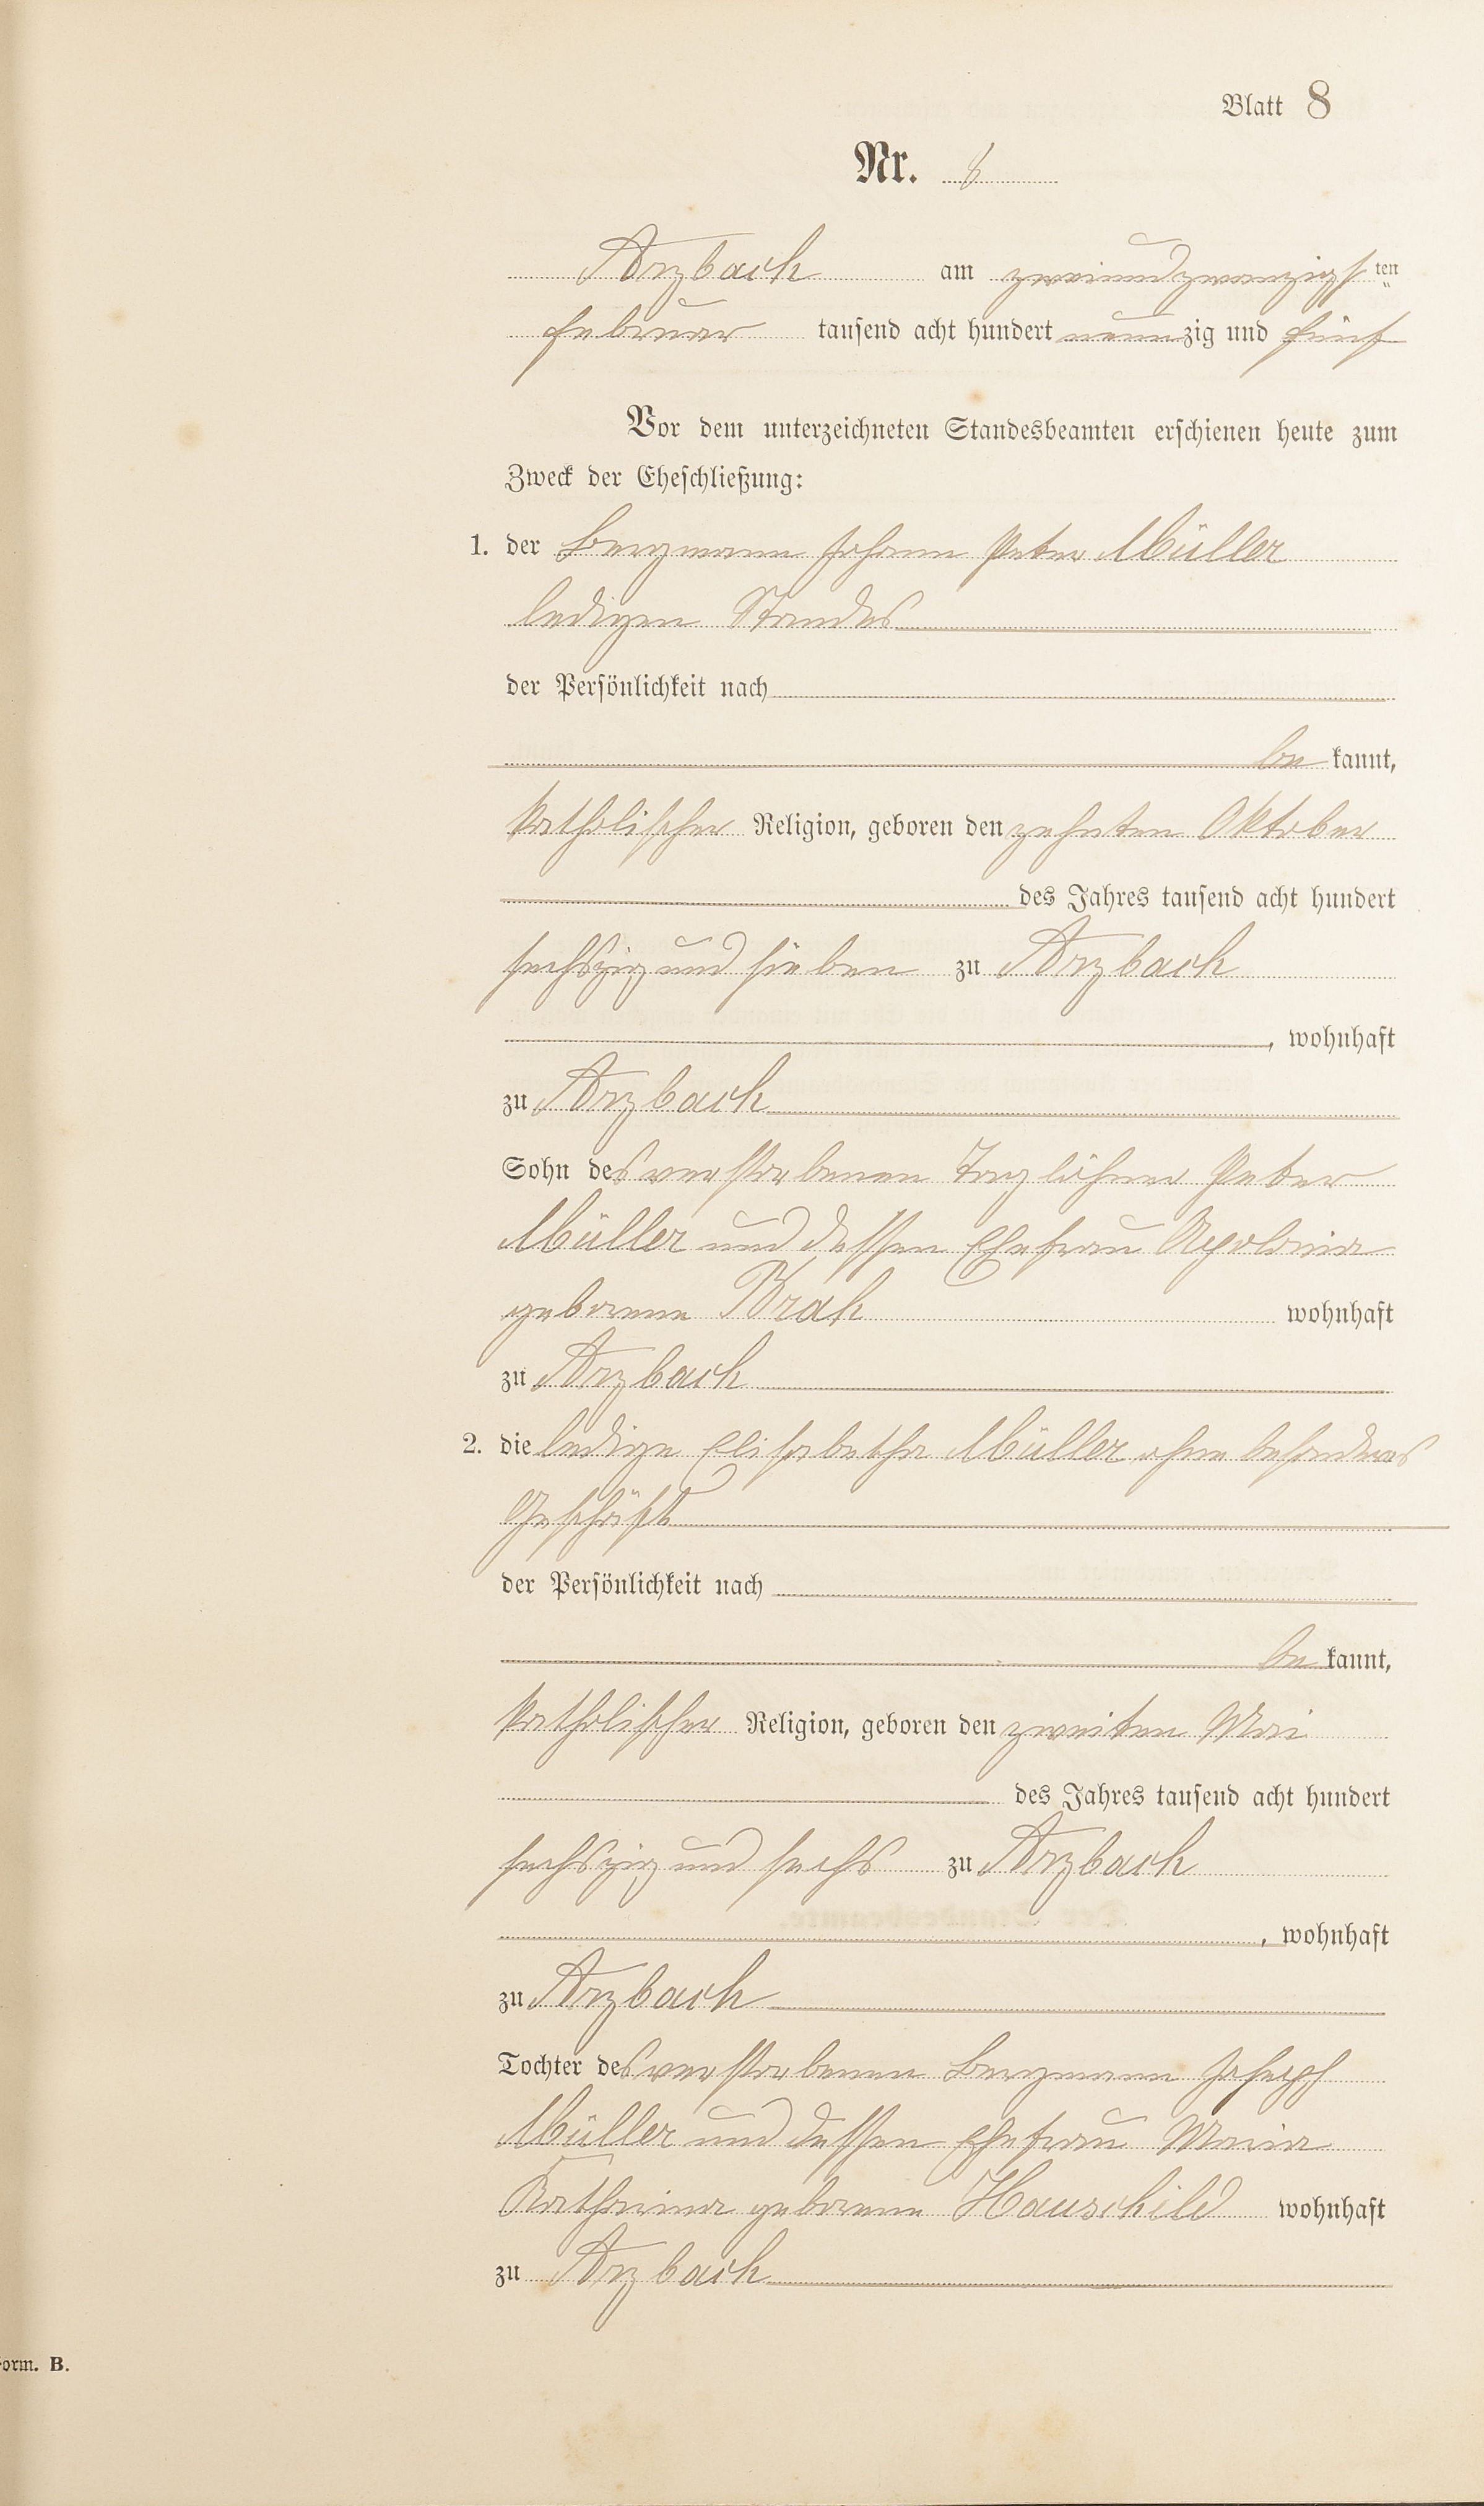 Blatt 8
Nr. 8
Arzbach am zweiundzwanzigsten
Februar tausend acht hundert neunzig und fünf
Vor dem unterzeichneten Standesbeamten erschienen heute zum
Zweck der Eheschließung:
1. der Bergmann Johann Peter Müller
ledigen Standes
der Persönlichkeit nach
be kannt,
katholischer Religion, geboren den zehnten Oktober
des Jahres tausend acht hundert
sechszig und sieben zu Arzbach
, wohnhaft
zu Arzbach
Sohn des verstorbenen Taglöhner Peter
Müller und dessen Ehefrau Apolonia
geborene Brah wohnhaft
zu Arzbach
2. die ledige Elisabetha Müller ohne besonderes
Geschäft
der Persönlichkeit nach
be kannt,
katholischer Religion, geboren den zweiten Mai
des Jahres tausend acht hundert
sechszig und sechs zu Arzbach
, wohnhaft
zu Arzbach
Tochter des verstorbenen Bergmann Joseph
Müller und dessen Ehefrau Maria
Katharina geborene Hauschild wohnhaft
zu Arzbach
orm. B.